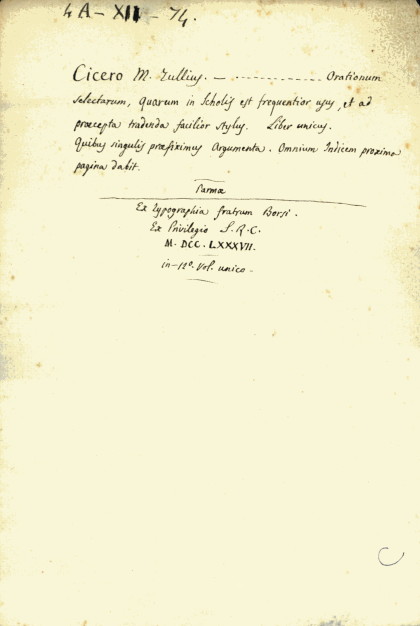 4A - XII - 74.
Cicero M. Tullius. — ............ Orationum
selectarum, quarum in Scholis est frequentior usus, et ad
præcepta tradenda facilior stylus. Liber unicus.
Quibus singulis præfiximus Argumenta. Omnium Indicem proxima
pagina dabit.
Parmæ
Ex typographia fratrum Borsi.
Ex Privilegio S. R. C.
M. DCC. LXXXVII.
in-12º. Vol. unico.
C